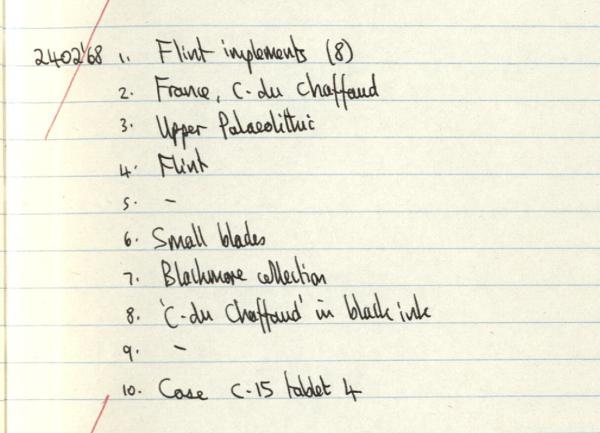 2402'68 1. Flint implements (8)
2. France, C. du Chaffaud
3. Upper Palaeolithic
4. Flint
5. -
6. Small blades
7. Blackmore collection
8. 'C. du Chaffaud' in black ink
9. -
10. Case C.15 tablet 4